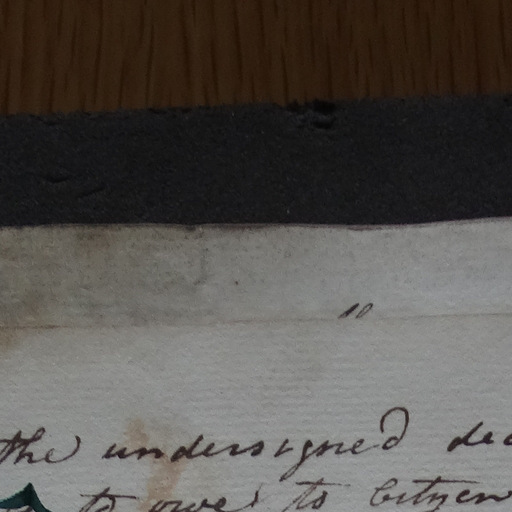 10
the undersigned dec
to owe to Citizen